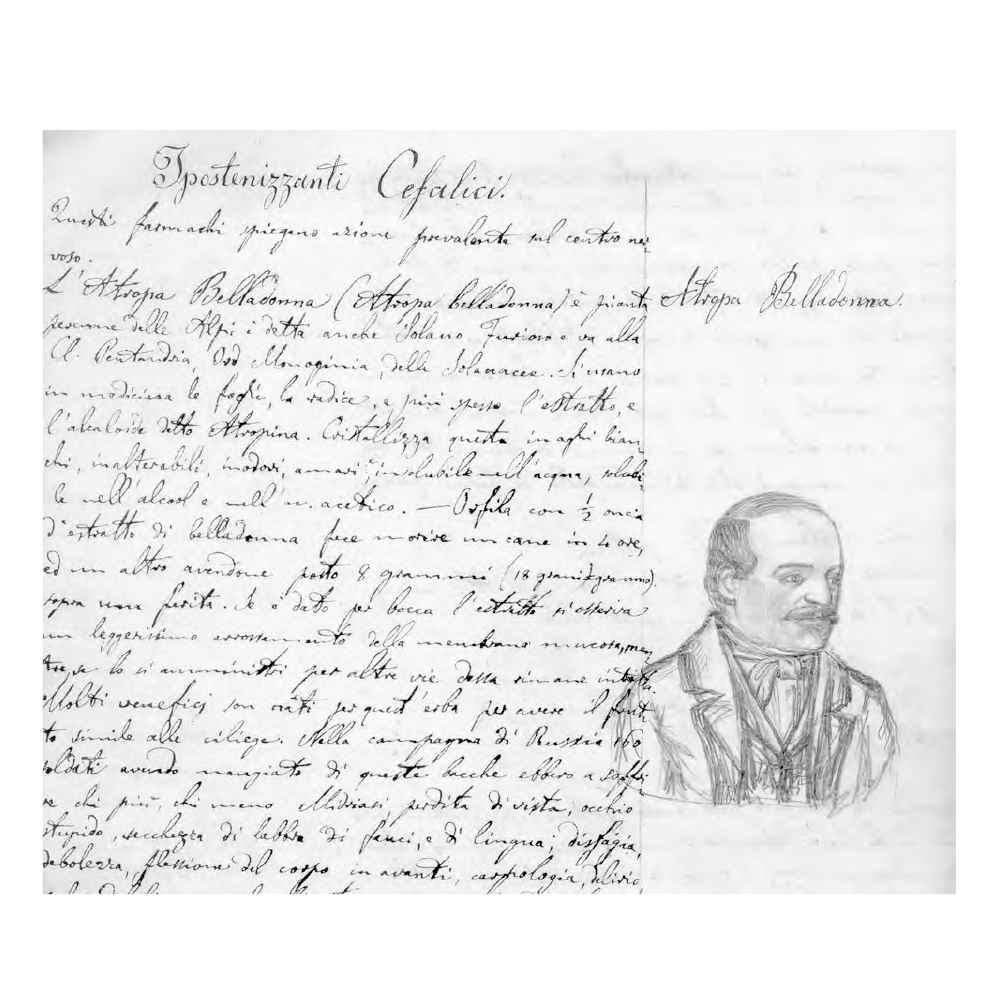 Ipostenizzanti Cefalici.
Questi farmachi spiegano azione prevalente sul centro ner-
voso.
L'Atropa Belladonna (Atropa belladonna) è pianta
Atropa Belladonna.
perenne delle Alpi è detta anche Solano Furioso e va alla
Cl. Pentandria, Ord Monoginia, delle Solanacee. Si usano
in medicina le foglie, la radice, e più spesso l'estratto, e
l'alcaloide detto Atropina. Cristallizza questa in aghi bian-
chi, inalterabili, inodori, amari; insolubile nell'acqua, solubi-
le nell'alcool e nell' ac. acetico. — Orfila con ½ oncia
d'estratto di belladonna fece morire un cane in 4 ore,
ed un altro avendone posto 8 grammi (18 grani=grammo)
sopra una ferita. Se è dato per bocca l'estratto si osserva
un leggerissimo arrossamento della membrana mucosa, men-
tre, se lo si amministri per altre vie dessa rimane intatta.
Molti venefici son nati per quest'erba per avere il frut-
to simile alle ciliege. Nella campagna di Russia 160
soldati avendo mangiato di queste bacche ebbero a soffri-
re chi più, chi meno Midriasi perdita di vista, occhio
stupido, secchezza di labbra di fauci, e di lingua; disfagia,
debolezza, flessione del corpo in avanti, carpologia, delirio,